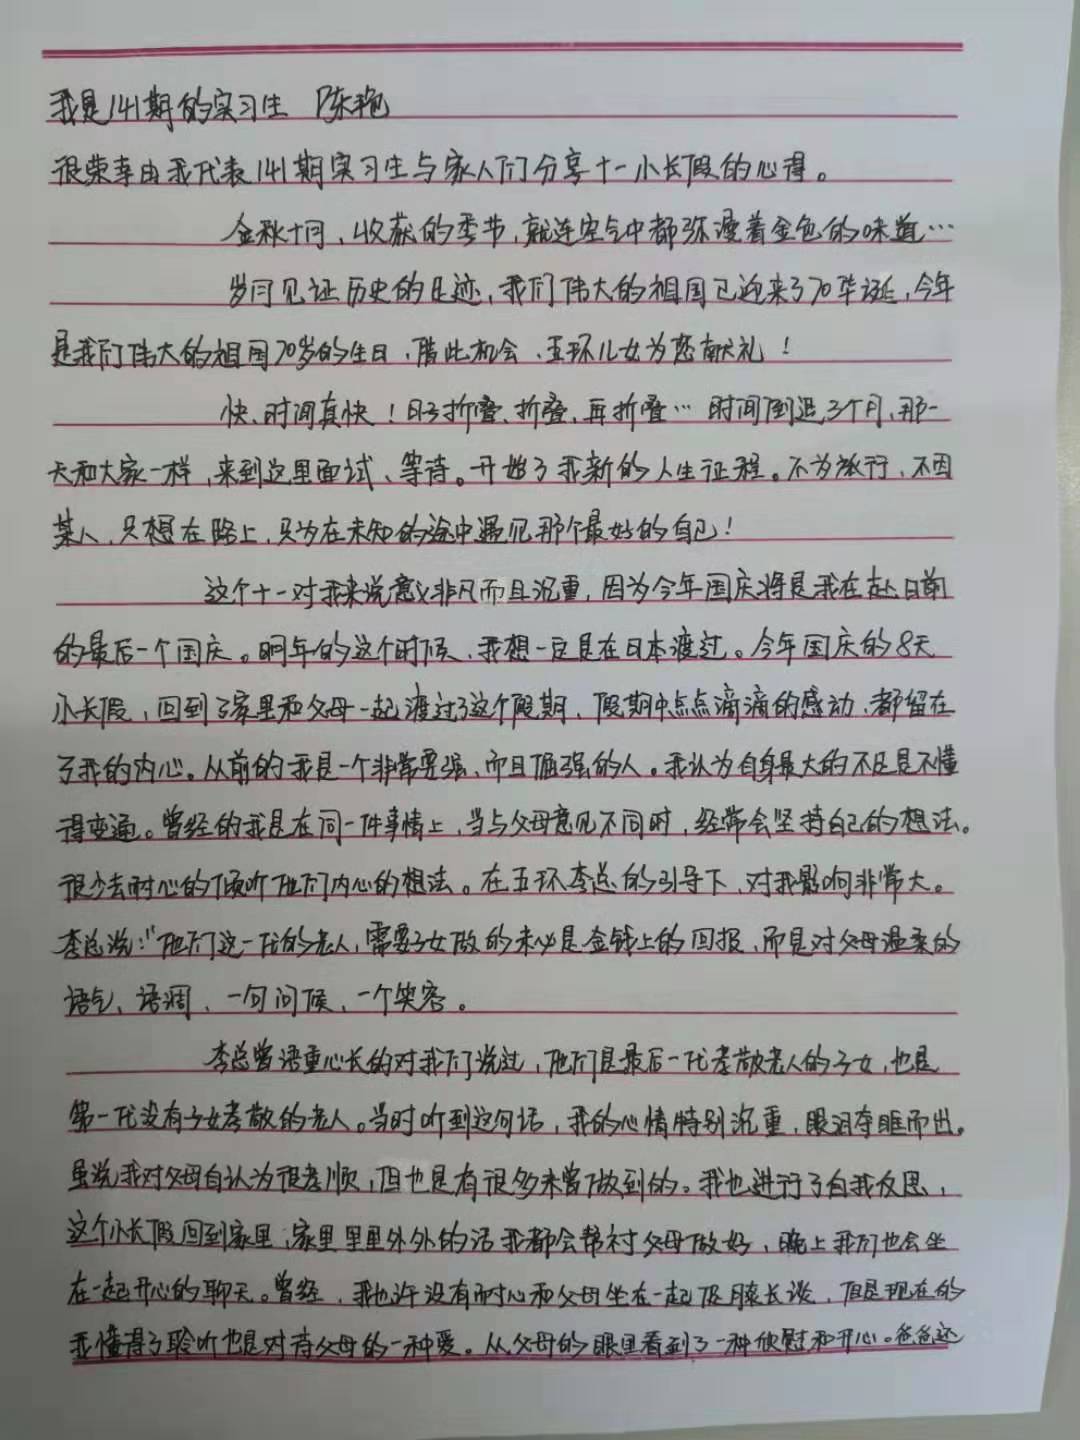 我是141期的实习生 陈艳
很荣幸由我代表141期实习生与家人们分享十一小长假的心得。
金秋十月、收获的季节,就连空气中都弥漫着金色的味道…
岁月见证历史的足迹,我们伟大的祖国已迎来了70华诞,今年
是我们伟大的祖国70岁的生日、借此机会、五环儿女为您献礼!
快、时间真快!日子折叠、折叠,再折叠… 时间倒退3个月,那一
天和大家一样,来到这里面试、等待。开始了我新的人生征程。不为旅行、不因
某人、只想在路上,只为在未知的途中遇见那个最好的自己!
这个十一对我来说意义非凡而且沉重,因为今年国庆将是我在赴日前
的最后一个国庆。明年的这个时候、我想一定是在日本渡过。今年国庆的8天
小长假,回到了家里和父母一起渡过了这个假期、假期中点点滴滴的感动、都留在
了我的内心。从前的我是一个非常要强、而且倔强的人。我认为自身最大的不足是不懂
得变通。曾经的我是在同一件事情上,当与父母意见不同时,经常会坚持自己的想法。
很少去耐心的倾听他们内心的想法。在五环李总的引导下、对我影响非常大。
李总说:“他们这一代的老人,需要子女做的未必是金钱上的回报,而是对父母温柔的
语气、语调、一句问候、一个笑容。
李总曾语重心长的对我们说过,他们是最后一代孝敬老人的子女,也是
第一代没有子女孝敬的老人。当时听到这句话,我的心情特别沉重,眼泪夺眶而出。
虽说我对父母自认为很孝顺,但也是有很多未曾做到的。我也进行了自我反思,
这个小长假回到家里,家里里里外外的活我都会帮衬父母做好,晚上我们也会坐
在一起开心的聊天。曾经,我也许没有耐心和父母坐在一起促膝长谈,但是现在的
我懂得了聆听也是对待父母的一种爱。从父母的眼里看到了一种欣慰和开心。爸爸还